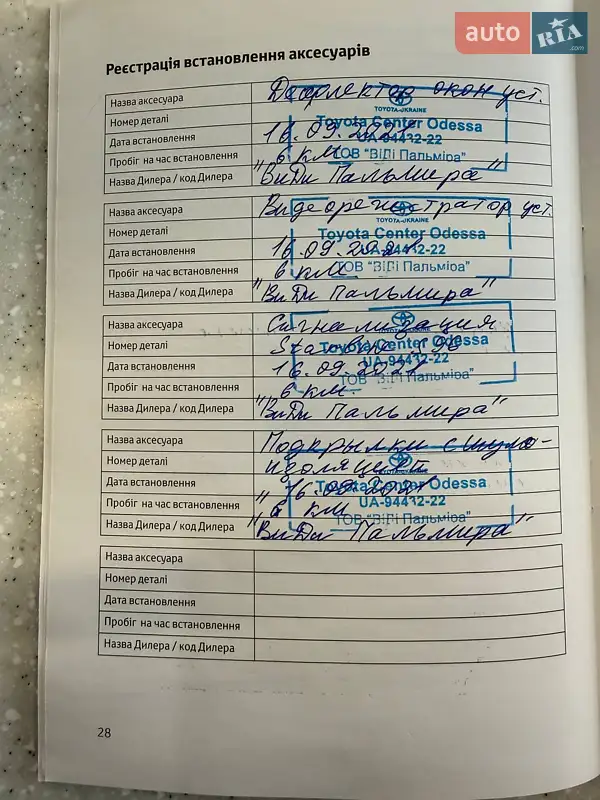 auto RIA .com
Реєстрація встановлення аксесуарів
Назва аксесуара Дефлектор окон уст.
Номер деталі
Дата встановлення 16.09.2021
Пробіг на час встановлення 6 км
Назва Дилера / код Дилера "ВиДи Пальмира"
TOYOTA-UKRAINE
Toyota Center Odessa
UA-94412-22
ТОВ "ВІДІ Пальміра"
Назва аксесуара Видеорегистратор уст.
Номер деталі
Дата встановлення 16.09.2021
Пробіг на час встановлення 6 км
Назва Дилера / код Дилера "ВиДи Пальмира"
TOYOTA-UKRAINE
Toyota Center Odessa
UA-94412-22
ТОВ "ВІДІ Пальміра"
Назва аксесуара Сигнализация
Номер деталі StarLine
Дата встановлення 16.09.2021
Пробіг на час встановлення 6 км.
Назва Дилера / код Дилера "ВиДи Пальмира"
Toyota Center Odessa
UA-94412-22
ТОВ "ВІДІ Пальміра"
Назва аксесуара Подкрылки с шумо-
Номер деталі изоляцией
Дата встановлення 16.09.2021
Пробіг на час встановлення 6 км
Назва Дилера / код Дилера "ВиДи Пальмира"
Toyota Center Odessa
UA-94412-22
ТОВ "ВІДІ Пальміра"
Назва аксесуара
Номер деталі
Дата встановлення
Пробіг на час встановлення
Назва Дилера / код Дилера
28